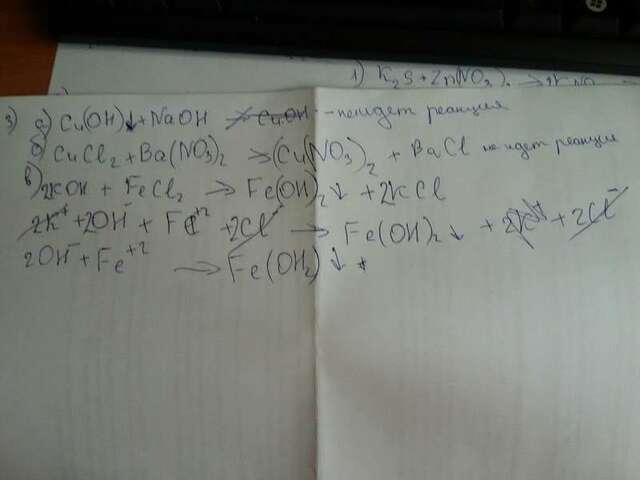 1) K₂S + Zn(NO₃)₂ → 2KNO
3) а) Cu(OH)↓ + NaOH ↛ CuOH - не идет реакция
б) CuCl₂ + Ba(NO₃)₂ → (Cu(NO₃)₂ + BaCl не идет реакция
в) 2KOH + FeCl₂ → Fe(OH)₂↓ + 2KCl
2K⁺ + 2OH⁻ + Fe⁺² + 2Cl⁻ → Fe(OH)₂↓ + 2K⁺ + 2Cl⁻
2OH⁻ + Fe⁺² → Fe(OH₂)↓